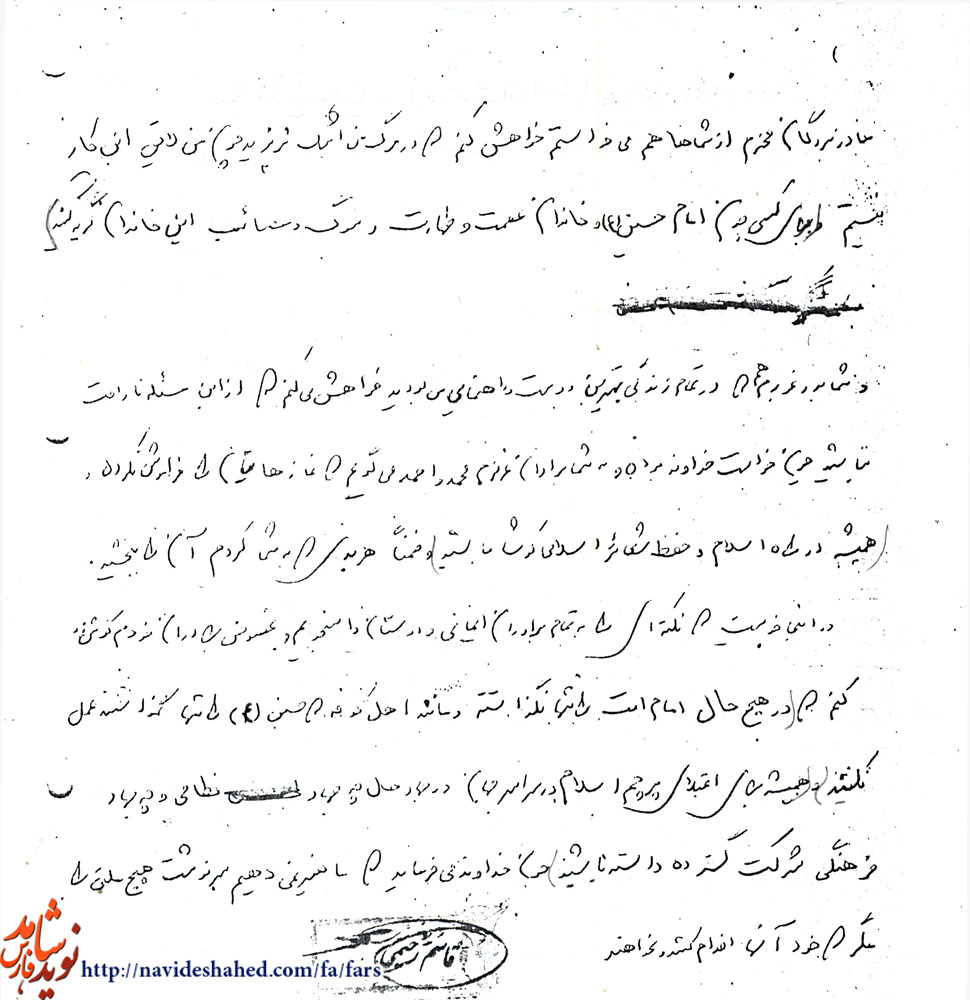 مادر بزرگان محترم از شماها هم می خواستم خواهش کنم که در مرگ من اشک نریزید چون من لایق این کار
نیستم برای کسی چون امام حسین (ع) و خاندان عصمت و طهارت و مرگ و مصائب این خاندان گریه کنید
و شما پدر عزیزم که در تمام زندگی بهترین دوست و راهنمای من بودید خواهش می کنم که از این مسئله ناراحت
نباشید چون خواست خداوند بوده و به شما برادران عزیزم محمد و احمد می گویم که نمازهایتان را فراموش نکرده و
همیشه در راه اسلام و حفظ شعائر اسلامی کوشا باشید و ضمناً هر بدی که به شما کردم آن را ببخشید.
در اینجا خوبست که نکته ای را به تمام برادران ایمانی و دوستان دانشجویم و بخصوص برادران خودم گوشزد
کنم که در هیچ حال امام امت را تنها نگذاشته و مانند اهل کوفه که حسین (ع) را تنها گذاشتند عمل
نکنید و همیشه برای اعتلای پرچم اسلام در سراسر جهان در همه حال چه جهاد نظامی و چه جهاد
فرهنگی شرکت گسترده داشته باشید چون خداوند می فرماید که ما تغییر نمی دهیم سرنوشت هیچ ملتی را
مگر که خود آنها اقدام کنند و بخواهند
قاسم
نوید شاهد
فارس
http://navideshahed.com/fa/fars